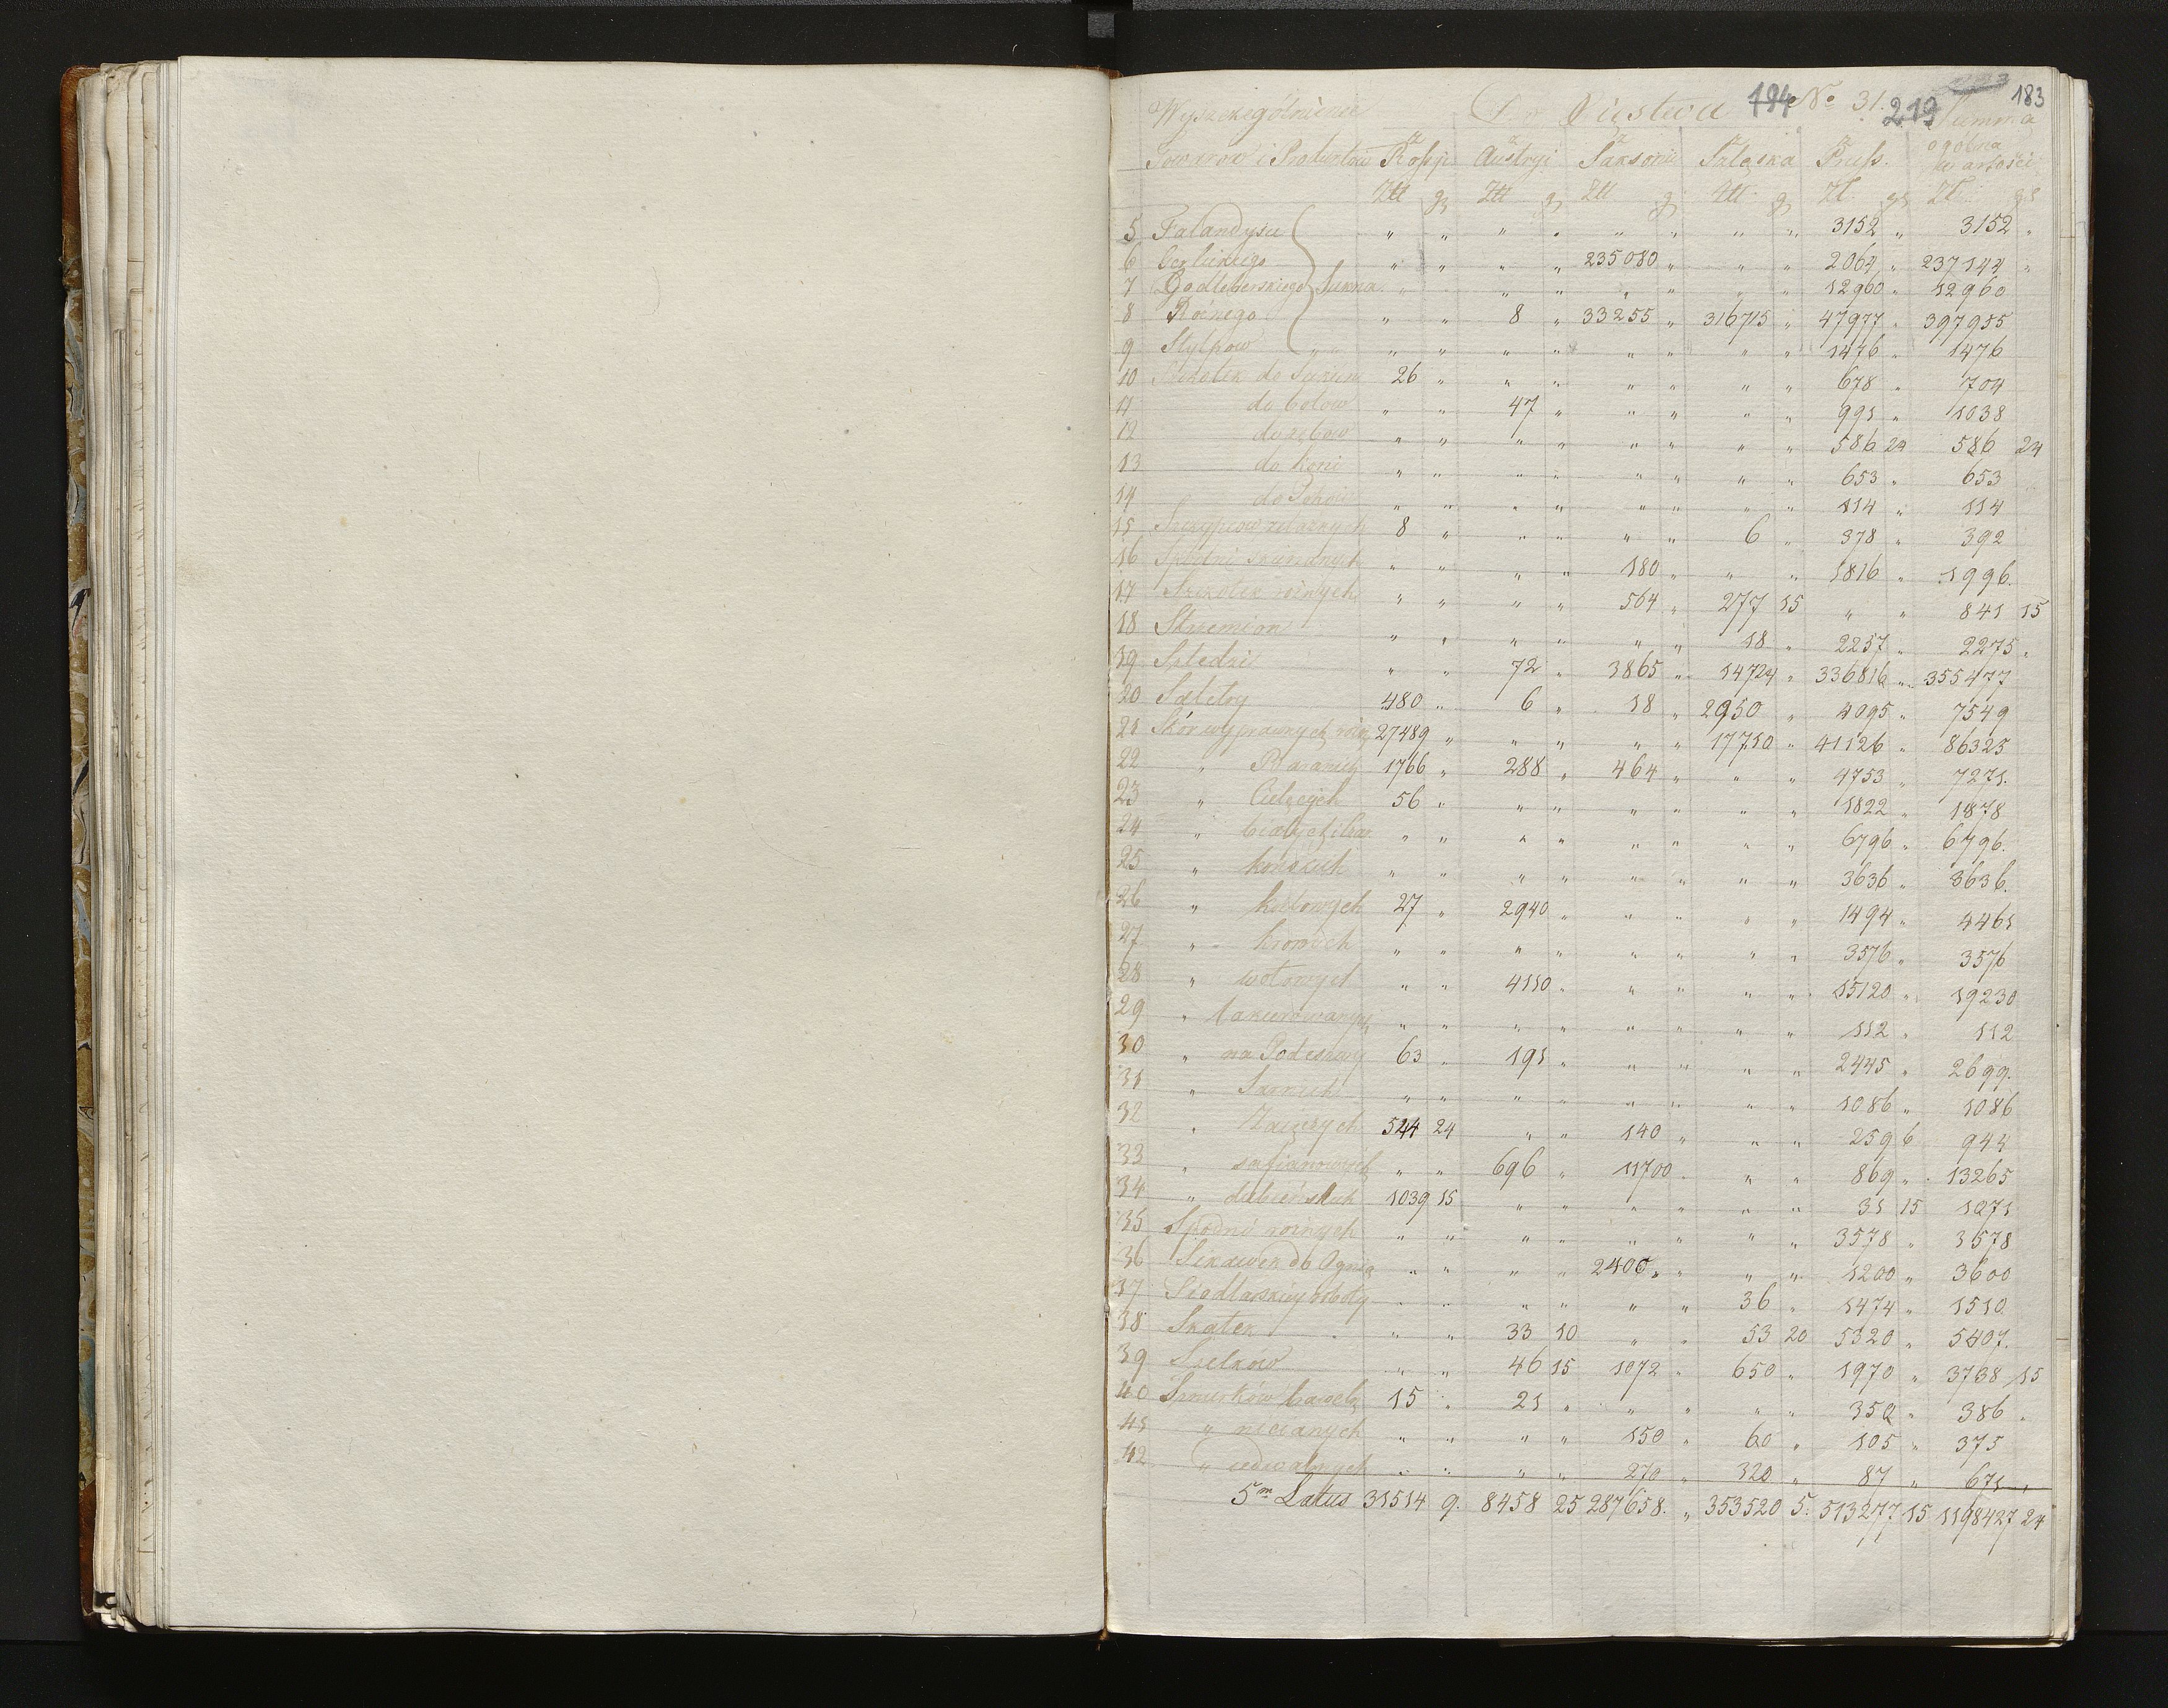 194 No 31. 219 183
Wyszczególnienie Do Xięstwa Summa
Towarow i Produktow z Rossyi z Austryi z Saxonii z Szląska z Pruss. ogólna wartości
Ztt gr Ztt gr Ztt gr Ztt gr Zt gr Zt gr
5 Falandyszu " " " " " " " " 3152 " 3152 "
6 Cerlickiego " " " " 235080 " " " 2064 " 237144 "
7 Godleberskiego Sukna " " " " " " " 12960 " 12960
8 Róznego " " 8 " 33255 " 316715 " 47977 " 397955
9 " " " " " " " " " " 1476 " 1476
10 do Sukien 26 " " " " " " " 678 " 704
11 do botow " " 47 " " " " " 991 " 1038
12 do zębow " " " " " " " " 586 24 586 24
13 do koni " " " " " " " " 653 " 653
14 do " " " " " " " " 114 " 114
15 Szczypcow zelaznych 8 " " " " " 6 " 378 " 392
16 " " " " 180 " " " 1816 " 1996.
17 Szczotek róznych " " " " 564 " 277 15 " " 841 15
18 Strzemion " " " " " " 18 " 2257 " 2275 "
19 Szledzi " " 72 " 3865 " 14724 " 336816 " 355477
20 Saletry 480 " 6 " 18 " 2950 " 4095 " 7549
21 Skór wyprawnych rózn 27489 " " " " " 17710 " 41126 " 86325
22 " Baranich 1766 " 288 " 464 " " " 4753 " 7271.
23 " Cielęcych 56 " " " " " " " 1822 " 1878
24 " białych " " " " " " " " 6796 " 6796.
25 " końskich " " " " " " " " 3636 " 3636.
26 " kozlowych 27 " 2940 " " " " " 1494 " 4461
27 " krowich " " " " " " " " 3576 " 3576
28 " wołowych " " 4110 " " " " " 15120 " 19230
29 " lakierowanych " " " " " " " " 112 " 112
30 " na Podeszwy 63 " 191 " " " " " 2445 " 2699.
31 " Sarnich " " " " " " " " 1086 " 1086
32 " Zaięczych 544 24 " " 140 " " " 259 6 944
33 " safianowych " " 696 " 11700 " " " 869 " 13265
34 " dubieńskich 1039 15 " " " " " " 31 15 1071
35 Spodni roznych " " " " " " " " 3578 " 3578
36 Sikawek do Ognia " " " " 2400 " " " 1200 " 3600
37 Siodlarskiey roboty " " " " " " 36 " 1474 " 1510
38 Szatek " " 33 10 " " 53 20 5320 " 5407.
39 Szelkow " " 46 15 1072 " 650 " 1970 " 3738 15
40 Sznurków bawełn 15 " 21 " " " " " 350 " 386 "
41 " nicianych " " " " 150 " 60 " 105 " 375
42 " iedwabnych " " " " 270 " 320 " 87 " 671 "
5m Latus 31514 9. 8458 25 287658. " 353520 5. 513277 15 1198427 24